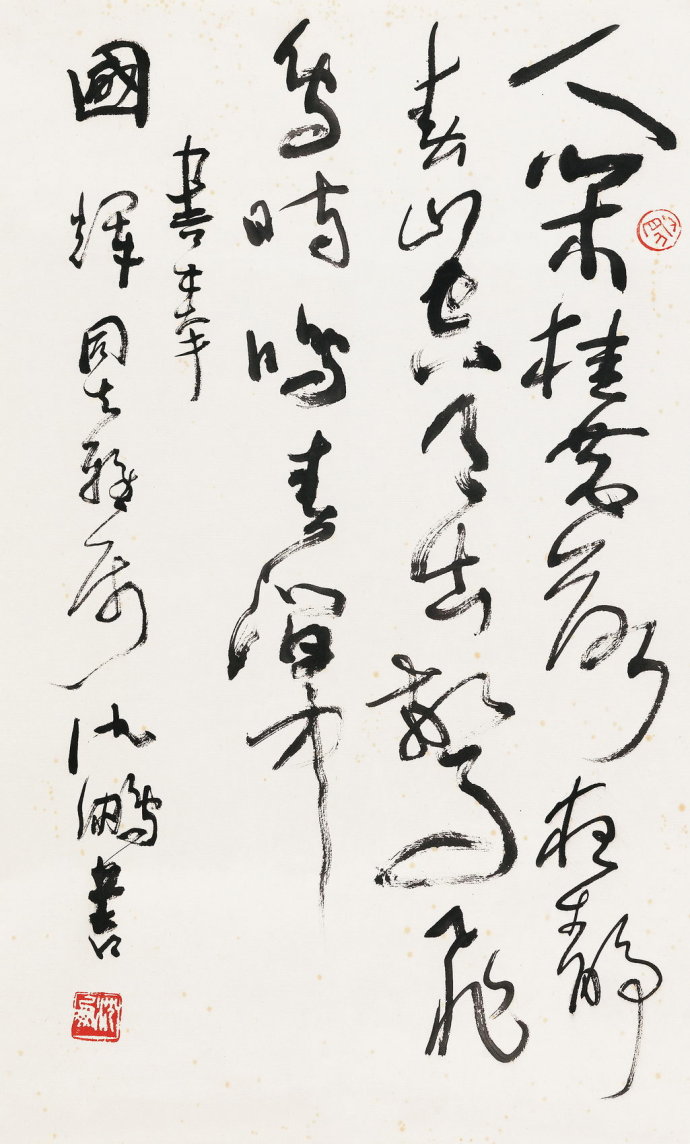 人閑桂花落夜静
春山空月出驚飛
鳥時鳴春澗中
書奉
國輝同志雅屬沈鵬書